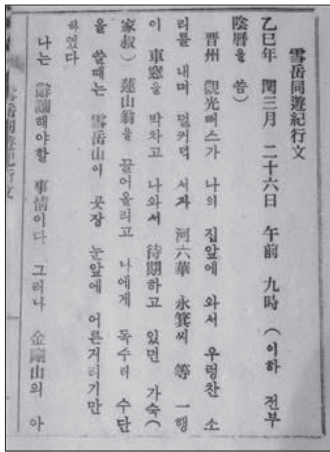 雪岳同遊紀行文
乙巳年 閏三月 二十六日 午前 九時 (이하 전부
陰曆을 씀)
晋州 觀光뻐스가 나의 집앞에 와서 우렁찬 소
리를 내며 덜커덕 서자 河六華 永箕씨 等 一行
이 車窓을 박차고 나와서 待期하고 있던 가숙(
家叔) 蓮山翁을 끌어올리고 나에게 독수리 수단
을 쓸때는 雪岳山이 곳장 눈앞에 어른거리기만
하였다
나는 해야할 事情이다 그러나 金剛山의 아